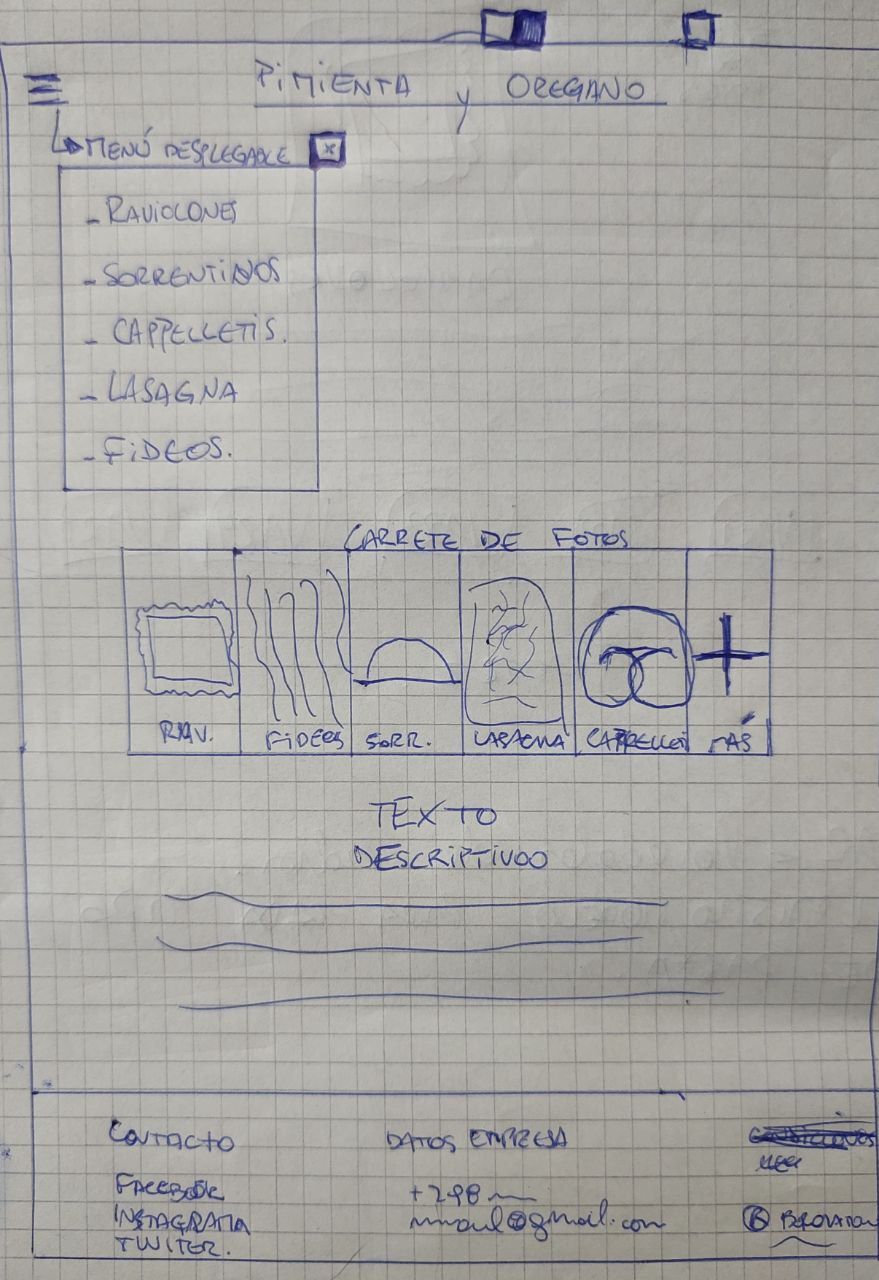 PIMIENTA y OREGANO
MENÚ DESPLEGABLE X
- RAVIOLONES
- SORRENTINOS
- CAPPELLETIS.
- LASAGNA
- FIDEOS.
CARRETE DE FOTOS
RAV. FIDEOS SORR. LASAGNA CAPPELLETI MÁS
TEXTO
DESCRIPTIVOO
CONTACTO DATOS EMPRESA
FACEBOOK +298
INSTAGRAM @gmail.com
TWITER.